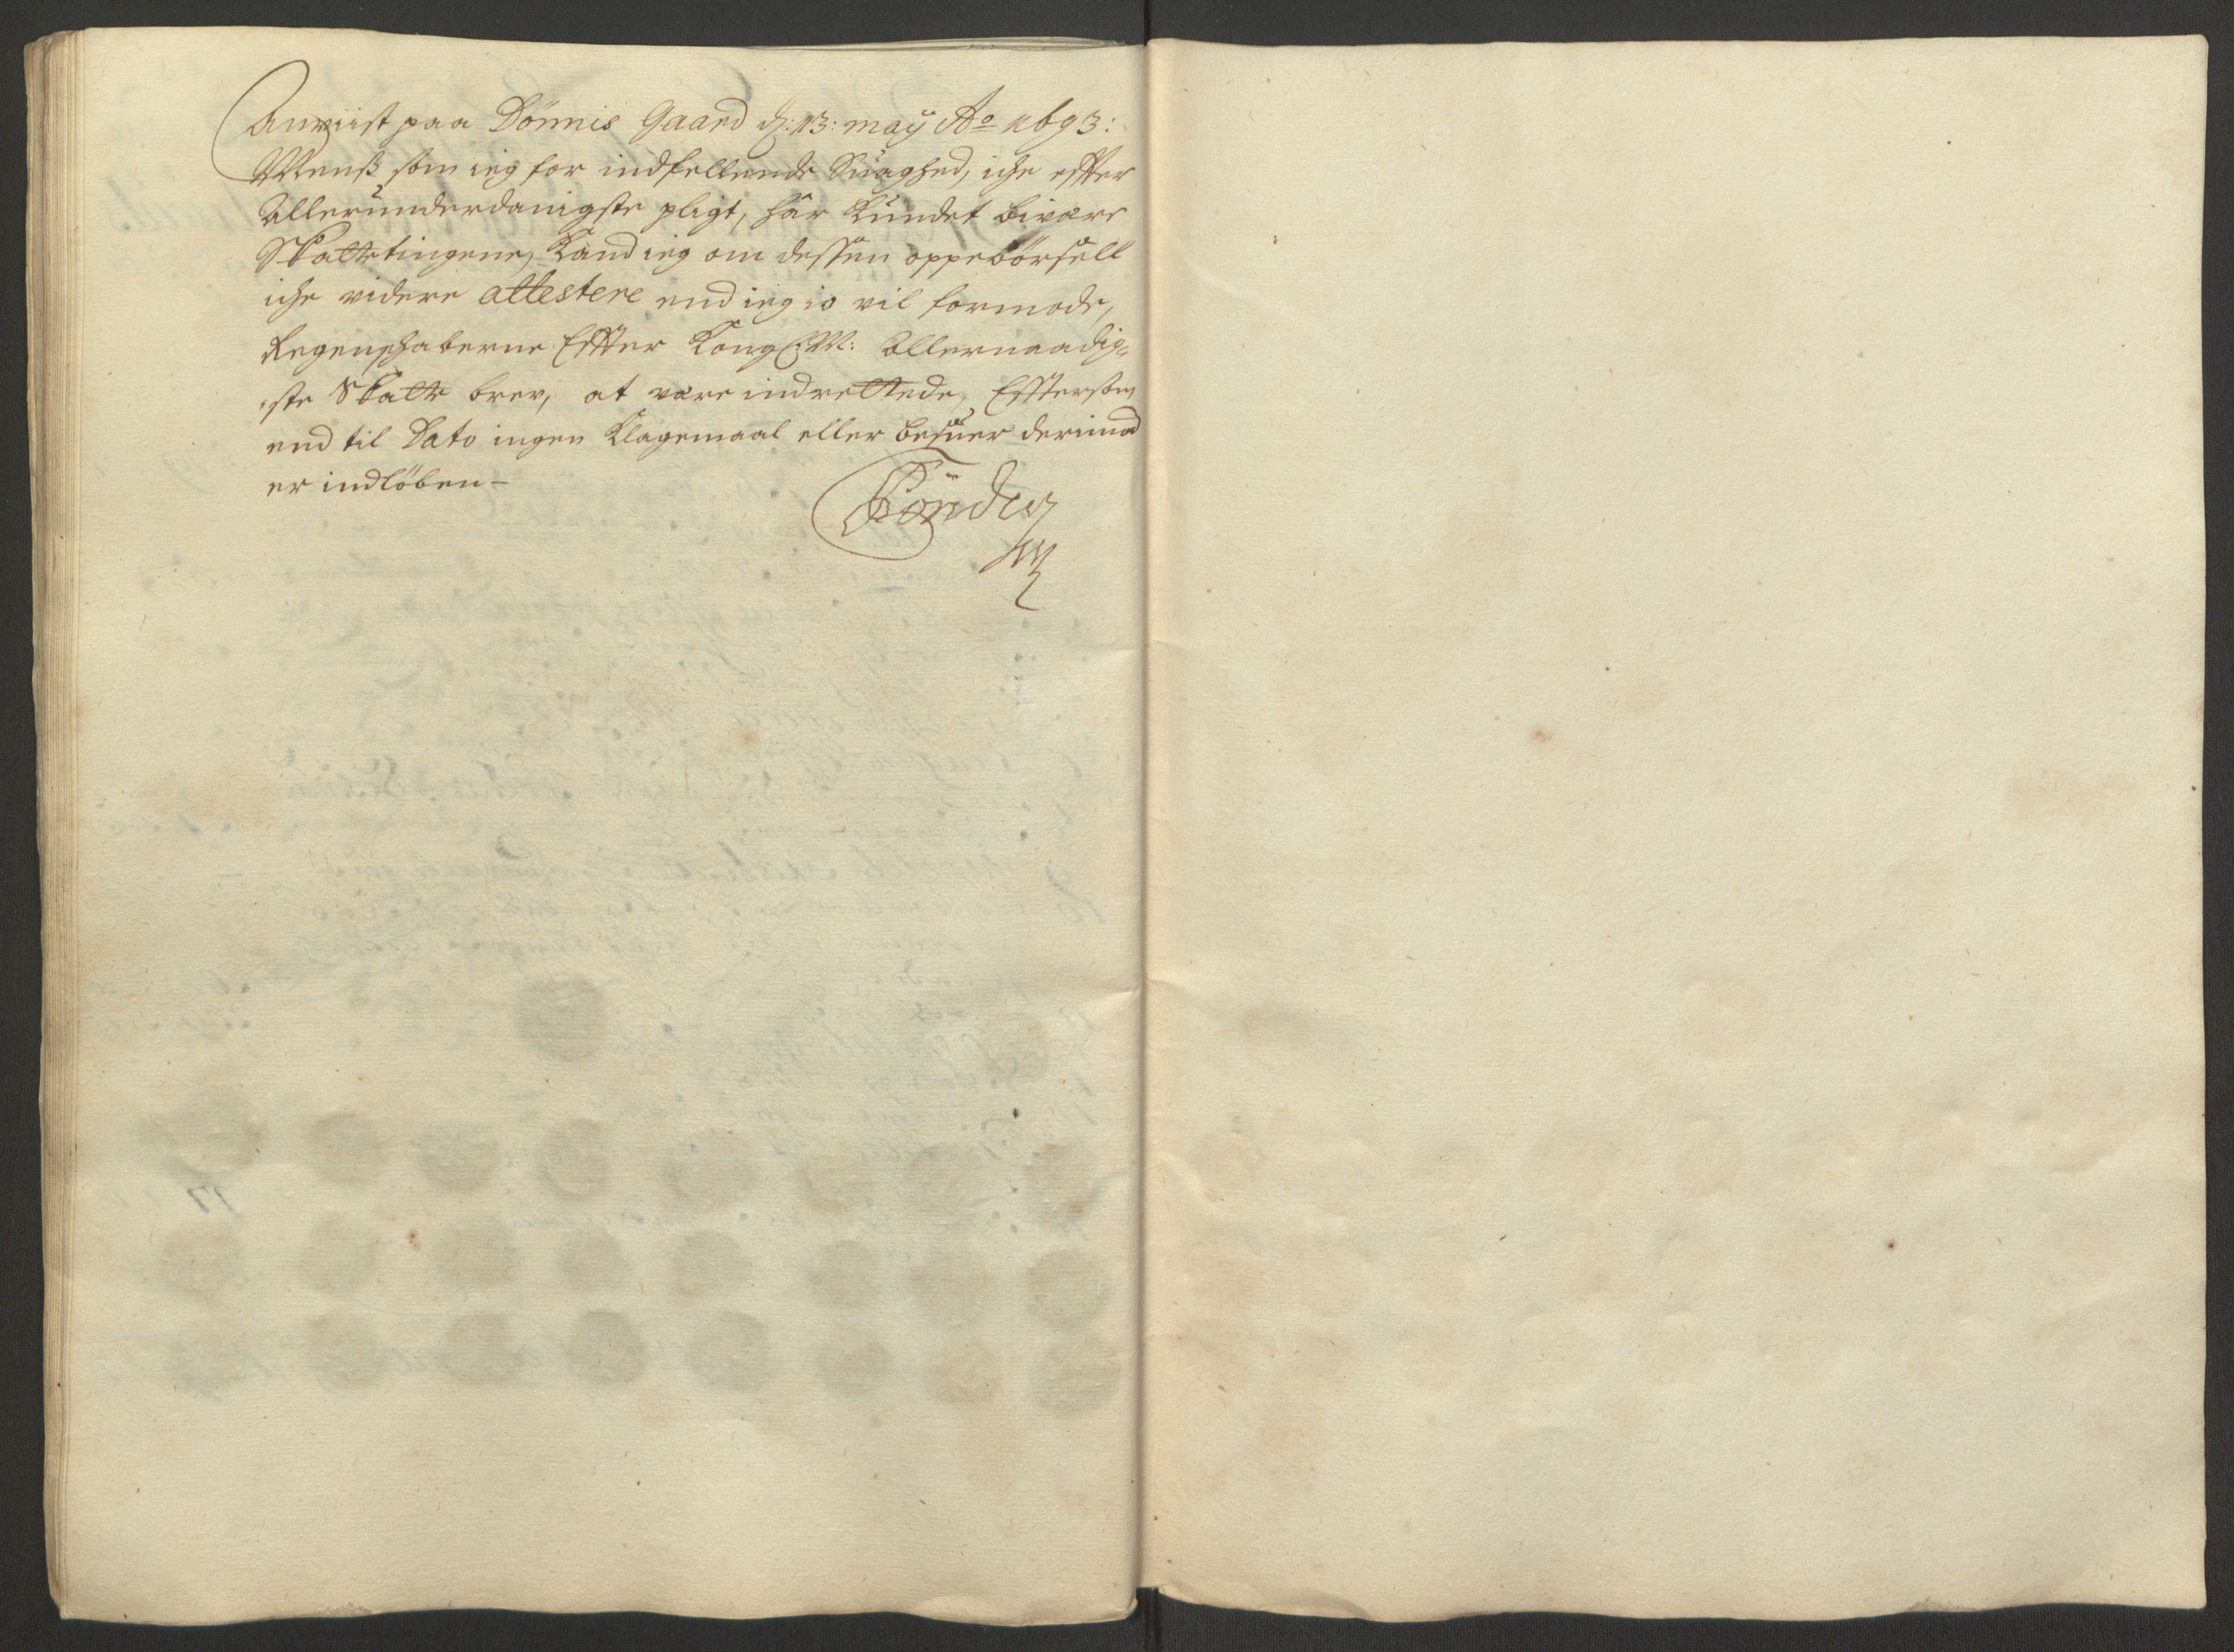 Anviist paa Dönnis Gaard d: 13: maÿ Ao 1693:
Menß som ieg for indfellende Suaghed, iche effter
Allerunderdanigste pligt, har kundet bivære
Skattetingene, kand ieg om dessen oppebörsell
iche videre attestere end ieg io vil formode,
Regenschaberne Effter Kongl: M: Allernaadig=
ste Skatte brev, at være indrettede, Efftersom
end til Dato ingen Klagemaal eller besuer derimod
er indlöben -
Tönder